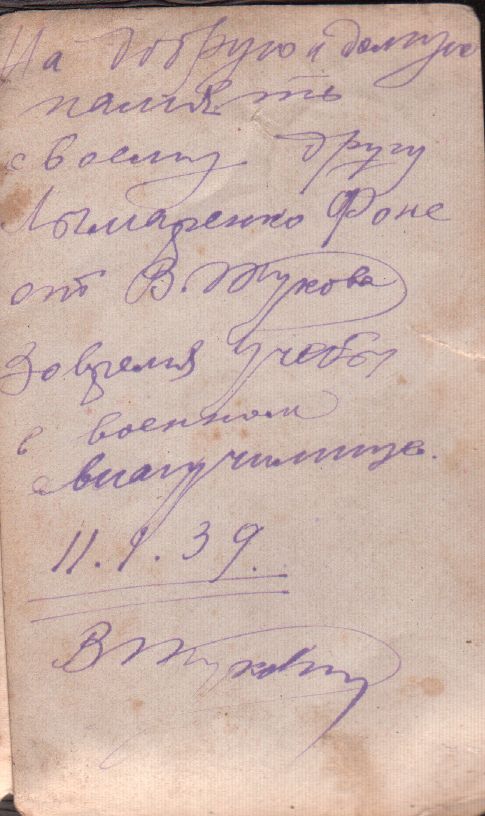 На добрую и долгую
память
своему другу
Лымаренко Фоне
от В. Жукова
Во время учебы
в военном
авиаучилище.
11.1.39.
В Жуков